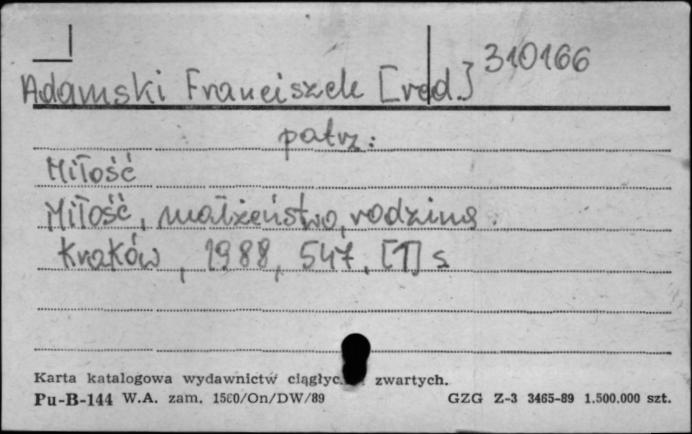 310166
Adamski Franciszek [red.]
patrz:
Miłość
Miłość, małżeństwo, rodzina.
Kraków, 1988, 547, [1] s
Karta katalogowa wydawnictw zwartych.
Pu-B-144 W.A. zam. /On/DW/89 GZG Z-3 3465-89 1.500.000 szt.